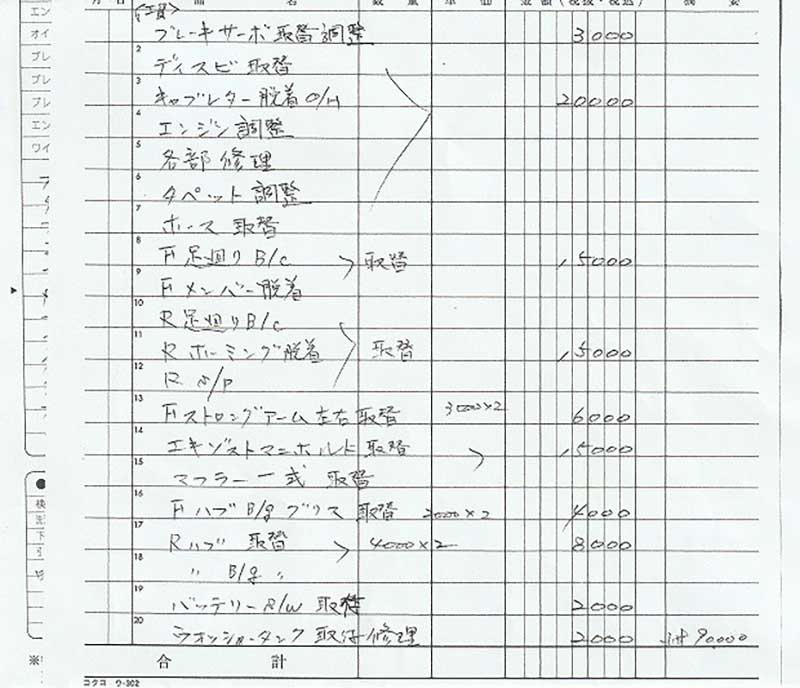 月 日 品 名 数 量 単 価 金 額 (税抜・税込) 摘 要
<工賃>
ブレーキサーボ取替調整 3000
2 ディスビ取替
3 キャブレター脱着O/H 20000
4 エンジン調整
5 各部修理
6 タペット調整
7 ホース取替
8 F足廻りB/c 取替 15000
9 Fメンバー脱着
10 R足廻りB/c
11 Rホーミング脱着 取替 15000
12 R S/P
13 Fストロングアーム左右取替 3000×2 6000
14 エキゾストマニホルド取替 15000
15 マフラー一式 取替
16 FハブB/gグリス取替 2000×2 4000
17 Rハブ 取替 4000×2 8000
18 〃 B/g 〃
19 バッテリー R/W 取替 2000
20 ウオッシャータンク取付修理 2000 計90000
合 計
コクヨ ウ-302
エン
オイ
ブレ
ブレ
ブレ
エン
ワイ
●
検
※